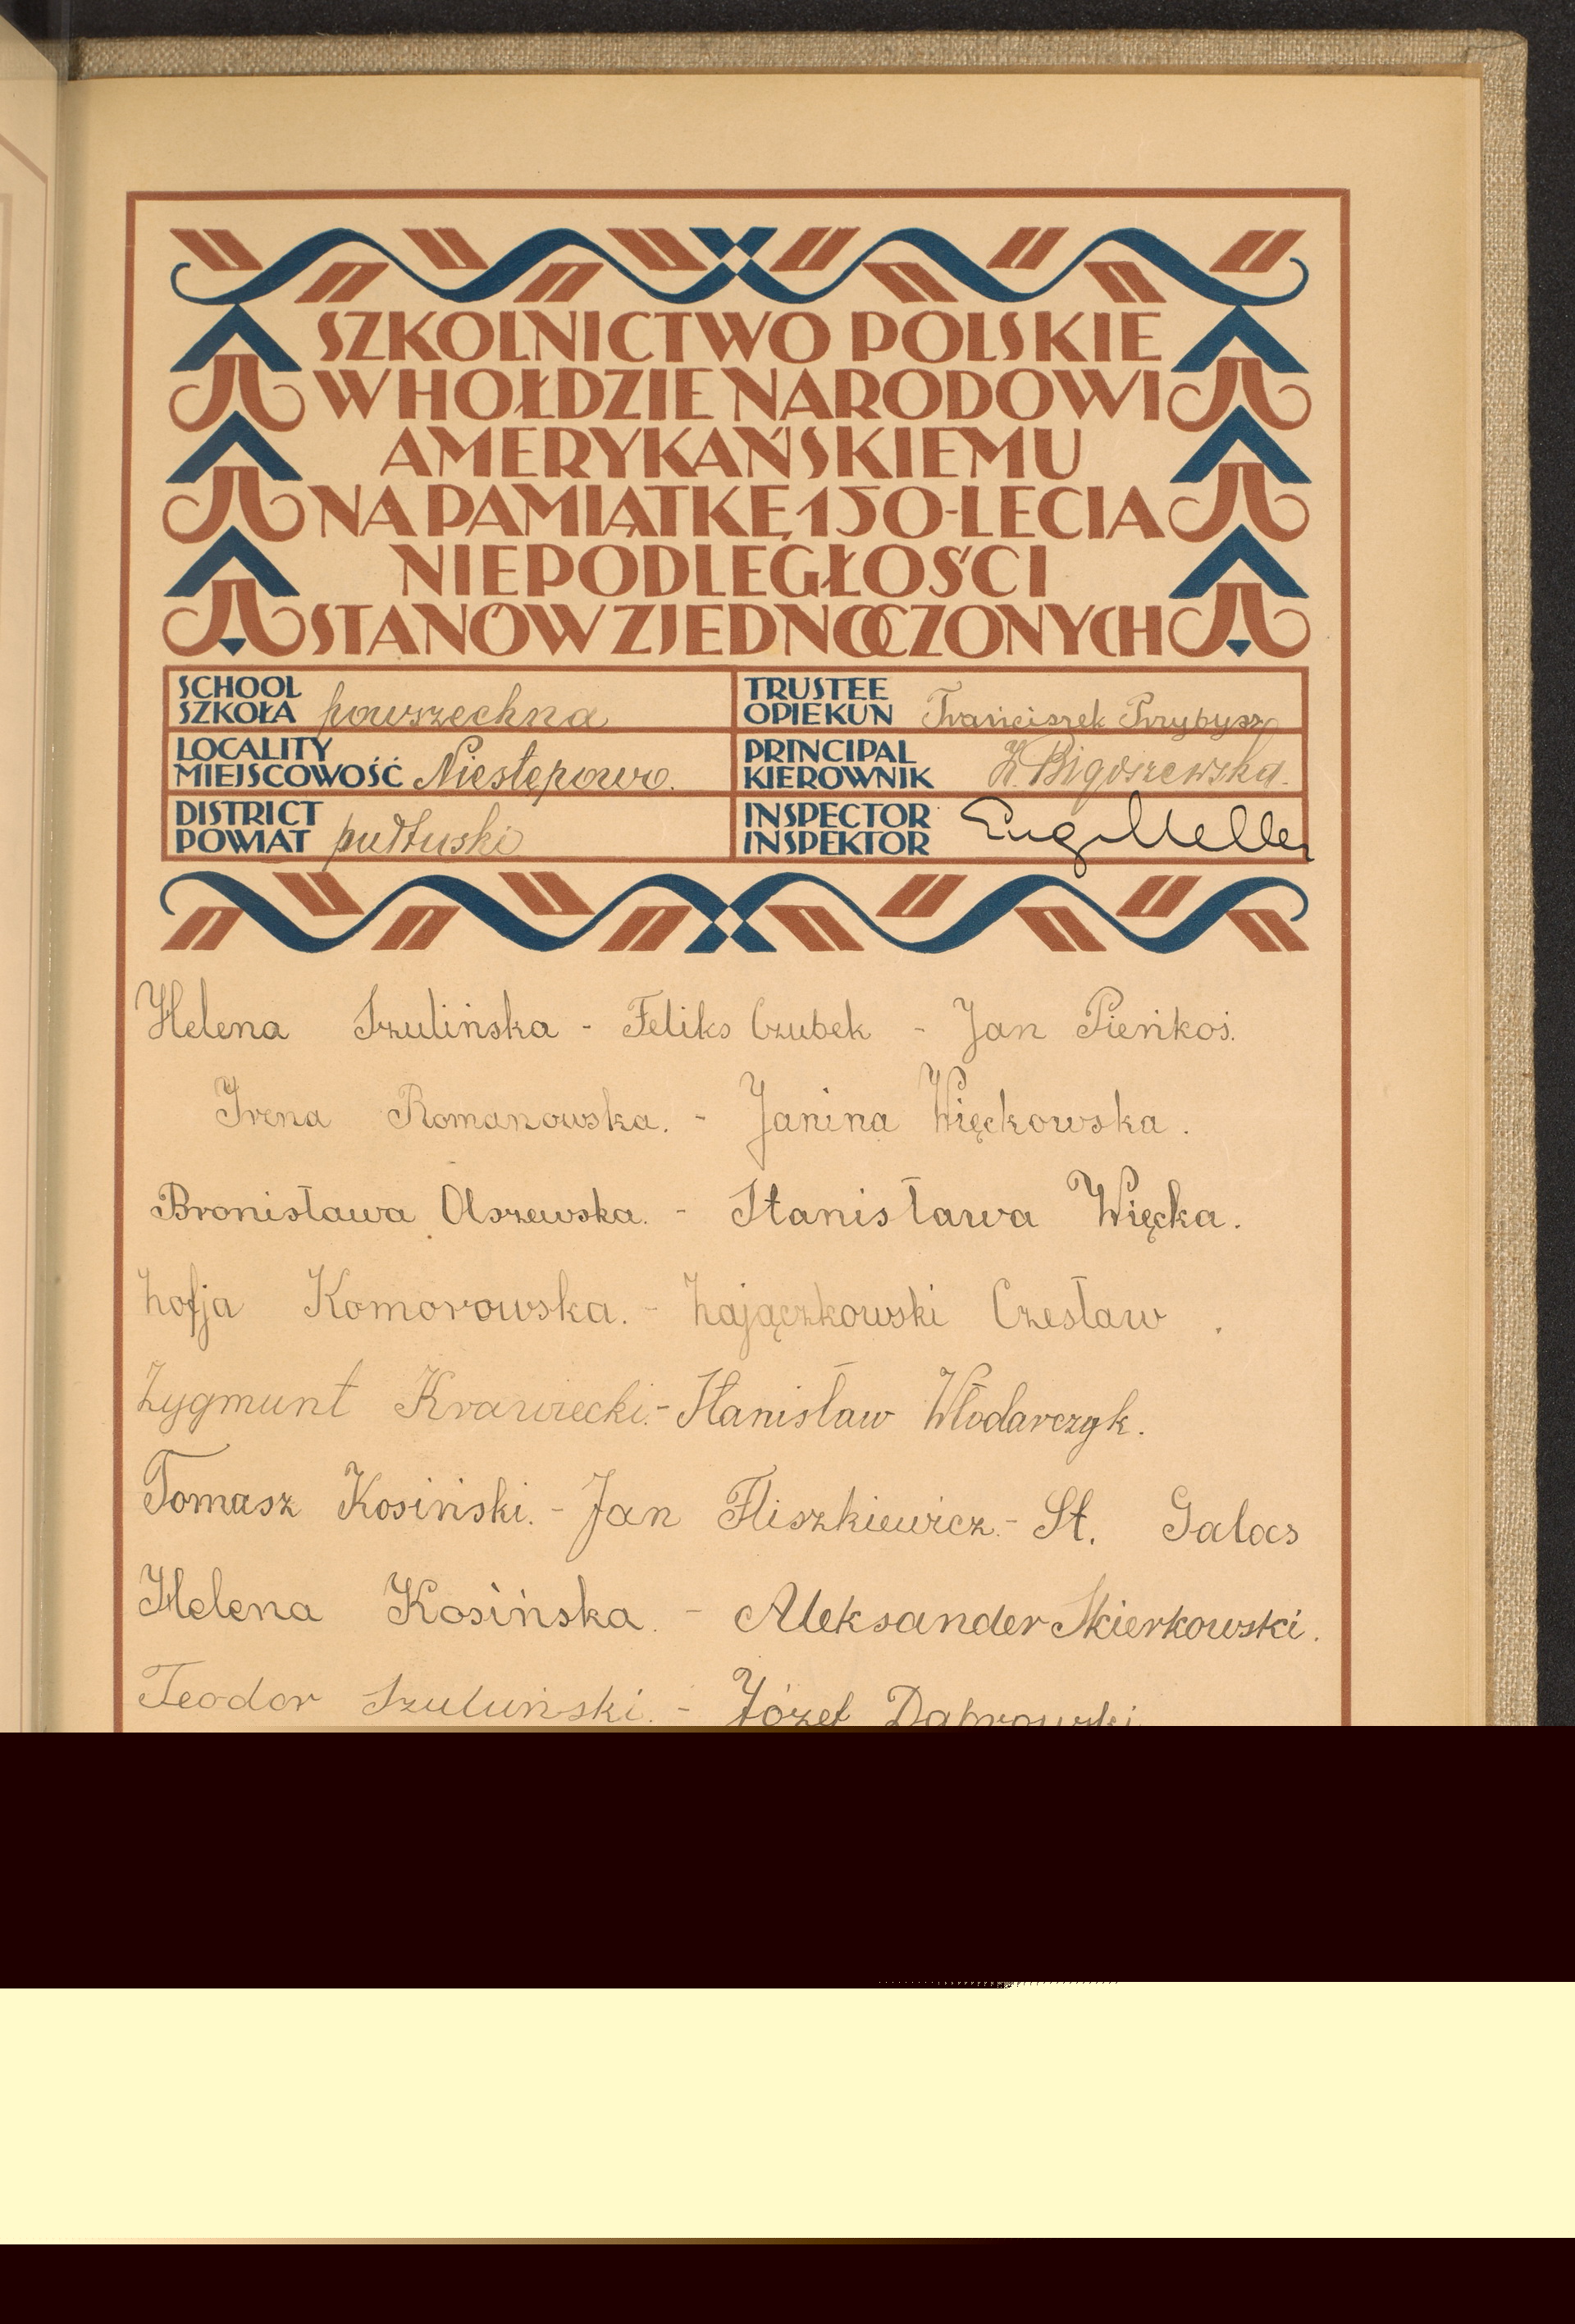 SZKOLNICTWO POLSKIE
W HOŁDZIE NARODOWI
AMERYKAŃSKIEMU
NA PAMIĄTKĘ 150-LECIA
NIEPODLEGŁOŚCI
STANÓW ZJEDNOCZONYCH
SCHOOL
SZKOŁA powszechna
TRUSTEE
OPIEKUN Franciszek Przybysz
LOCALITY
MIEJSCOWOŚĆ Niestępowo.
PRINCIPAL
KIEROWNIK Z. Bigoszewska.
DISTRICT
POWIAT pułtuski
INSPECTOR
INSPEKTOR
Helena Szulińska - Feliks Czubek - Jan Pieńkoś.
Irena Romanowska. - Janina Więckowska.
Bronisława Olszewska. - Stanisława Więcka.
Zofja Komorowska. - Zajączkowski Czesław.
Zygmunt Krawiecki. - Stanisław Włodarczyk.
Tomasz Kosiński. - Jan Fliszkiewicz. - St. Galas
Helena Kosińska. - Aleksander Skierkowski.
Teodor Szuliński. - Józef Dąbrowski